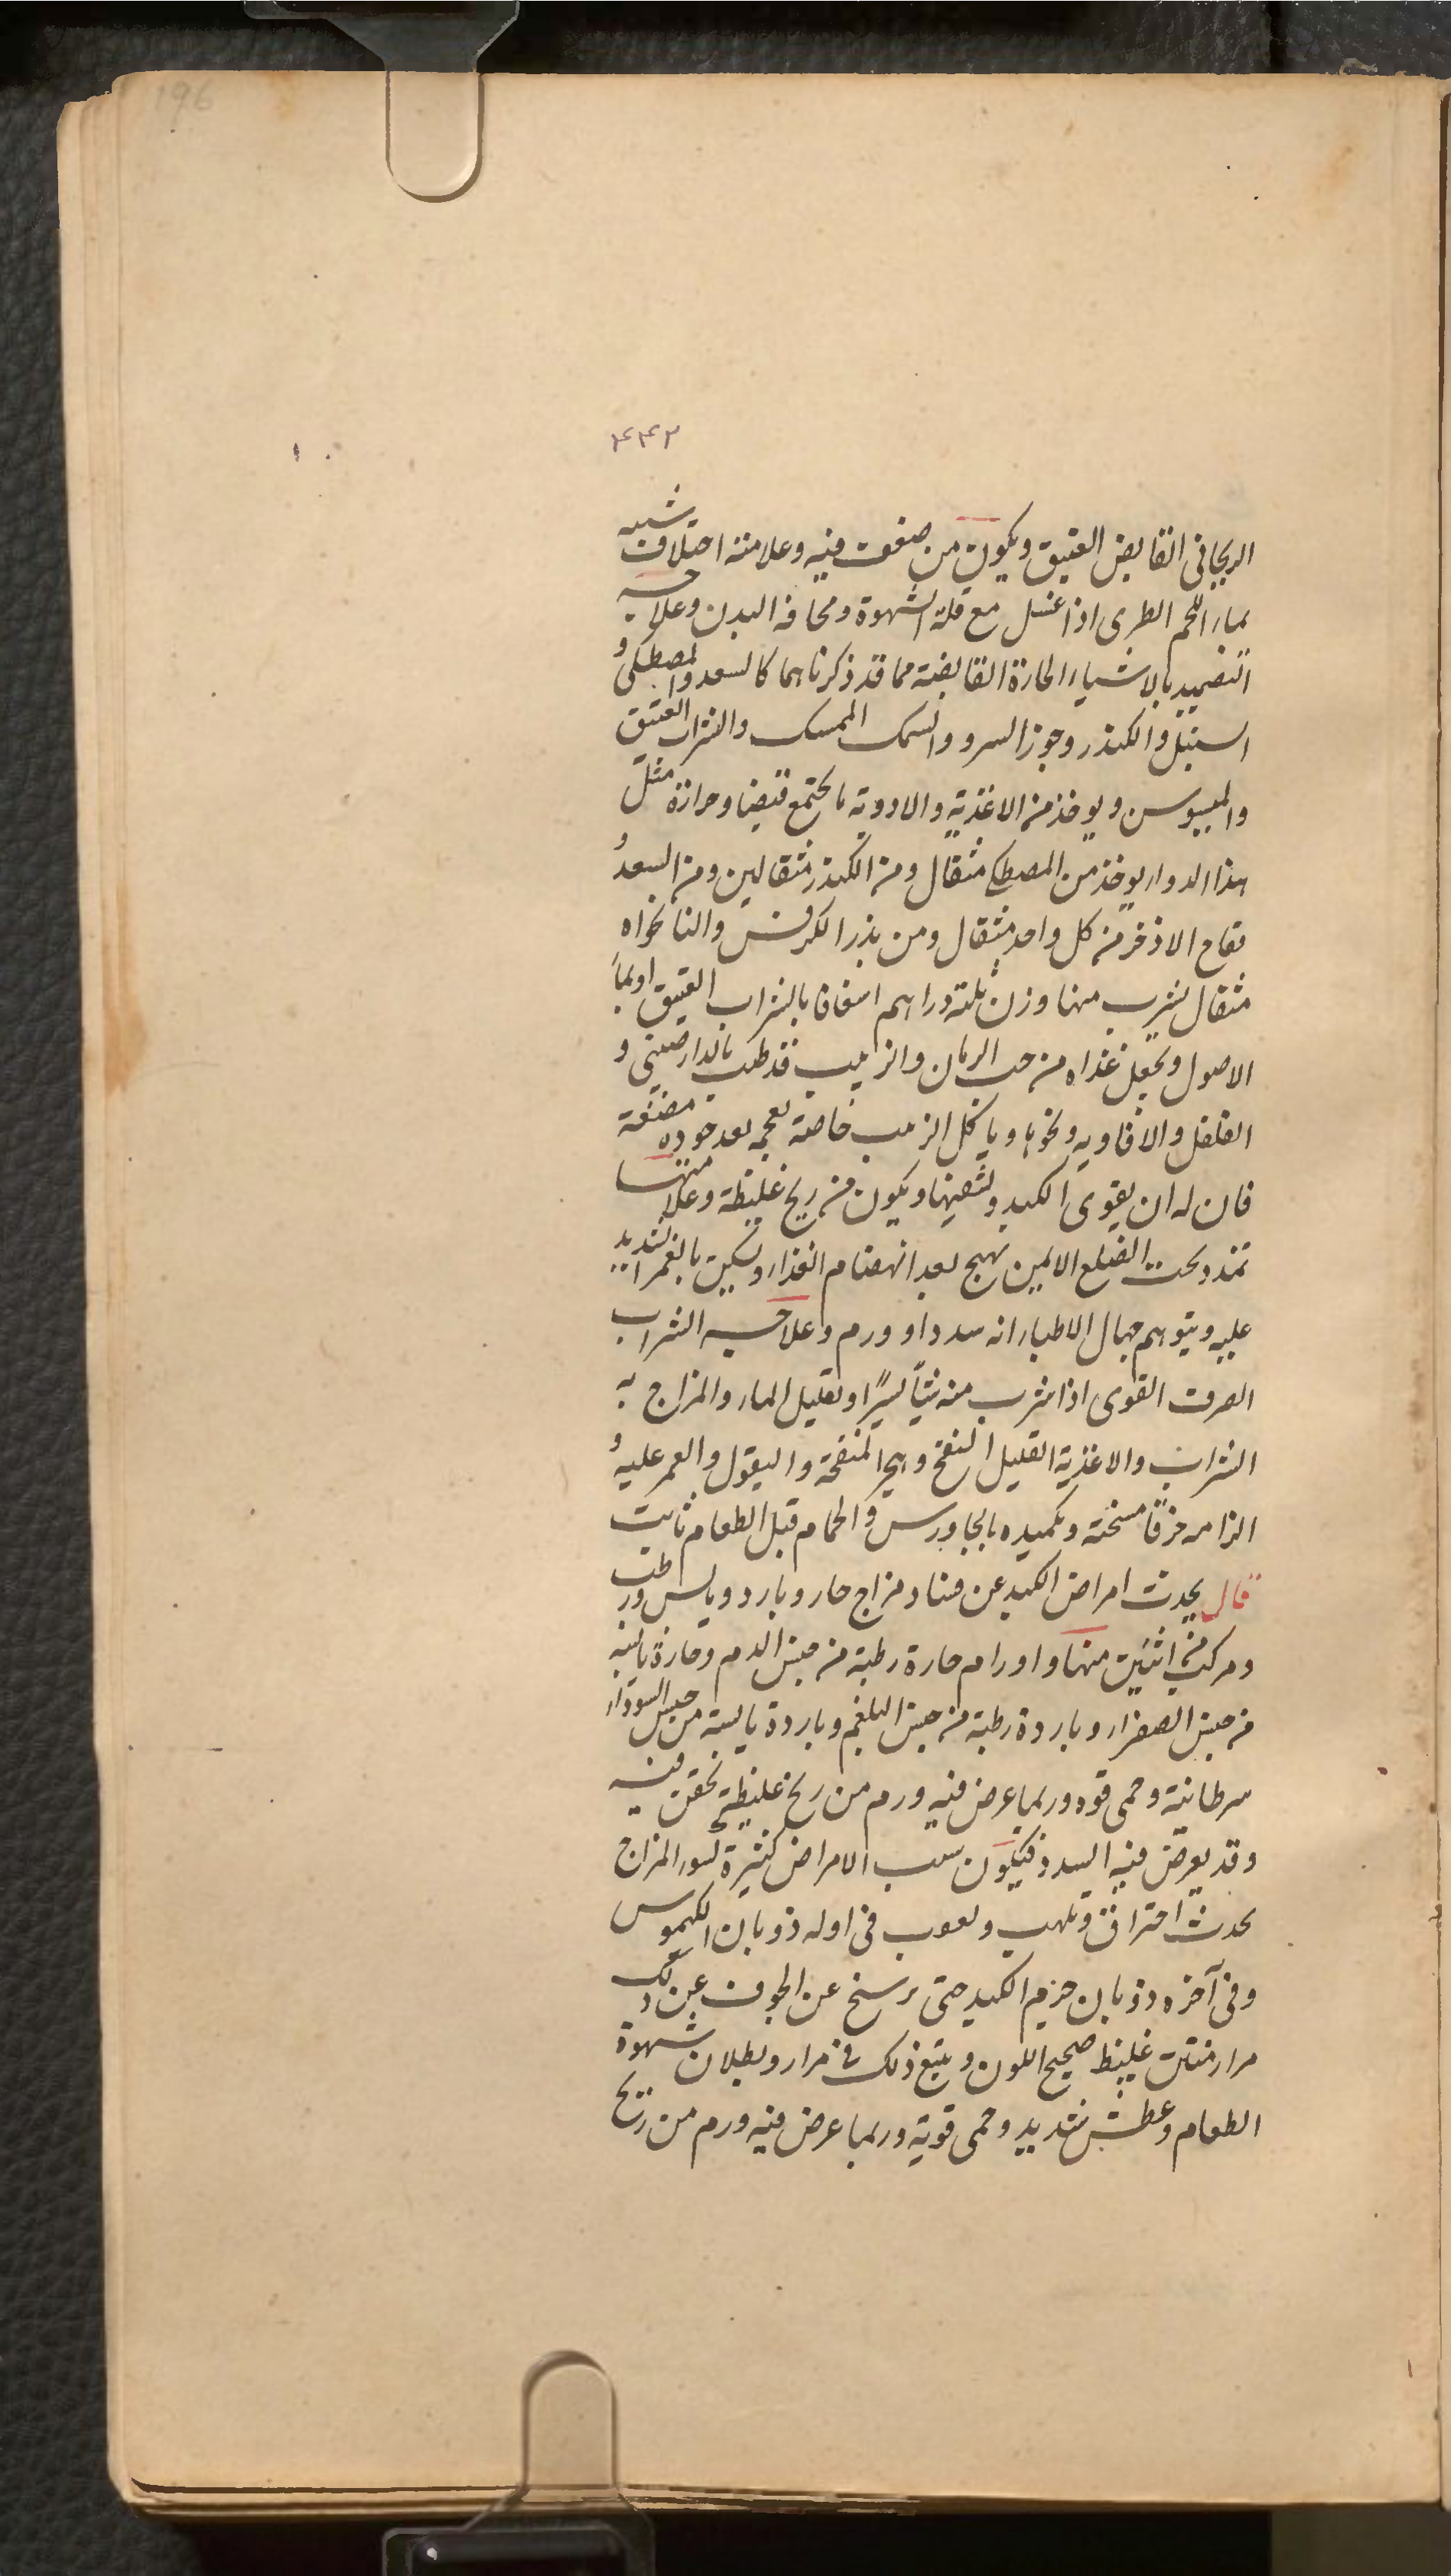 196
۴۴۲
الريحانى القابض العتيق ويكون من ضعف فيه وعلامته اختلاف شبيه
بماء اللحم الطرى اذا غسل مع قلة الشهوة ونحافة البدن وعلاجه
التضميد بالاشياء الحارة القابضة مما قد ذكرناها كالسعد والمصطكى و
السنبل والكندر وجوز السرو والسك الممسك والشراب العتيق
والميسوسن ويوخذ من الاغذية والادوية ما يجتمع قبضا وحرارة مثل
هذا الدواء يوخذ من المصطكى مثقال ومن الكندر مثقالين ومن السعد و
فقاح الاذخر من كل واحد مثقال ومن بذر الكرفس والنانخواه
مثقال يشرب منها وزن ثلثة دراهم اسفافا بالشراب العتيق او بماء
الاصول ويجعل غذاه من حب الرمان والزبيب قد طيب بالدارصينى و
الفلفل والافاويه ونحوها وياكل الزبيب خاصة بعجمه بعد جودة مضغه
فان له ان يقوى الكبد ويشفيها ويكون من ريح غليظة وعلامتها
تمدد تحت الضلع الايمن يهيج بعد انهضام الغذاء ويسكن بالغمز الشديد
عليه ويتوهم جهال الاطباء انه سدد او ورم وعلاجه الشراب
الصرف القوى اذا شرب منه شيأ يسيرًا وتقليل الماء والمزاج به
الشراب والاغذية القليل النفخ وهجر المنفخة والبقول والغمز عليه و
الزامه خرقًا مسخنة وتكميده بالجاورس والحمام قبل الطعام ثابت
قال يحدث امراض الكبد عن فساد مزاج حار وبارد ويابس ورطب
ومركب من اثنين منها واورام حارة رطبة من جنس الدم وحارة يابسة
من جنس الصفراء وباردة رطبة من جنس البلغم وباردة يابسة من جنس السوداء
سرطانية وحمى قوه وربما عرض فيه ورم من ريح غليظة تحقن فيه
وقد يعرض فيه السدد فيكون سبب الامراض كثيرة لسوء المزاج
يحدث احتراق وتلهب ولعوب فى اوله ذوبان الكيموس
وفى آخره ذوبان جرم الكبد حتى يرسخ عن الجوف عن ذلك
مرار منتن غليظ صحيح اللون ويتبع ذلك قئ مرار وبطلان شهوة
الطعام وعطش شديد وحمى قوية وربما عرض فيه ورم من ريح